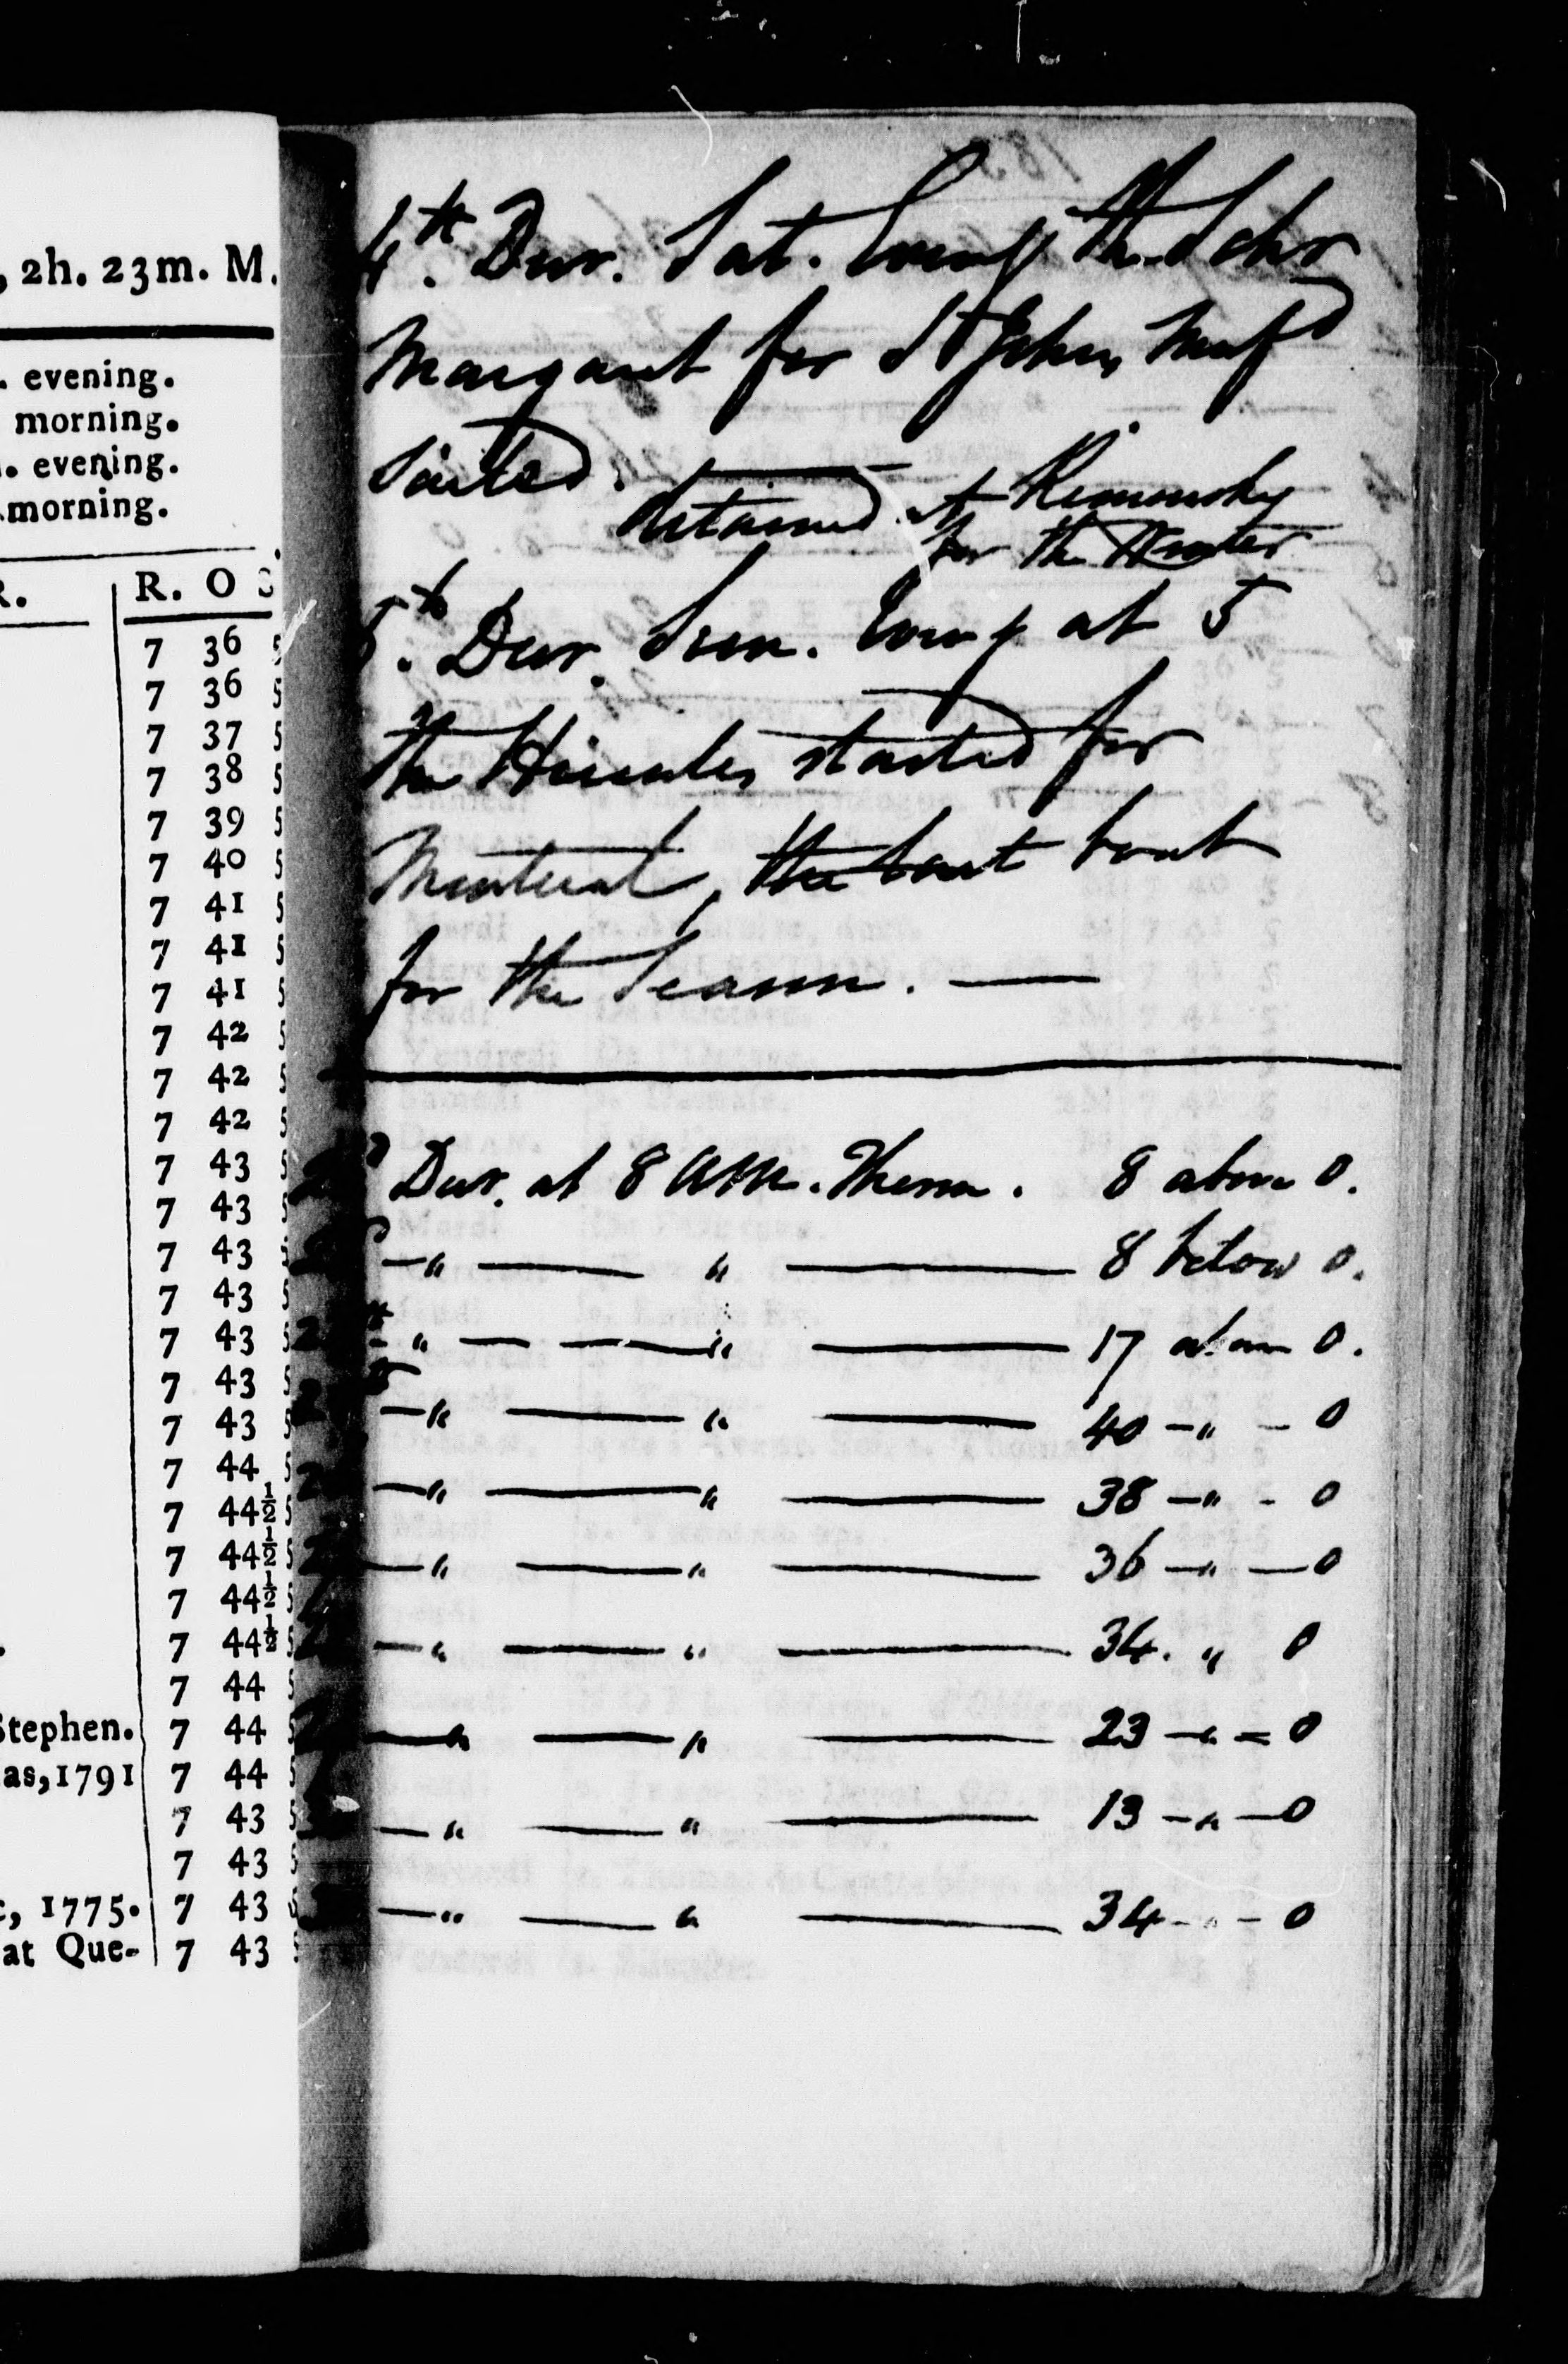 , 2h. 23m. M.
. evening.
morning.
. evening.
morning.
R. R. O
7 36 5
7 36 5
7 37 5
7 38 5
7 39 5
7 40 5
7 41 5
7 41 5
7 41 5
7 42 5
7 42 5
7 42 5
7 43 5
7 43 5
7 43
7 43 5
7 43 5
7 43 5
7 43 5
7 44 5
7 44½ 5
7 44½ 5
7 44½ 5
7 44½ 5
7 44
Stephen. 7 44
as, 1791 7 44
7 43 5
7 43
, 1775. 7 43
at Que- 7 43
4th. Decr. Sat. Eveng the Schr
Margaret for St Johns Newfd
Sailed.
detained at Rimousky
for the Winter
5th. Decr. Sun. Eveng at 5
the Hercules started for
Montreal, the last boat
for the Season. —
Decr. at 8 AM. Therm. 8 above 0.
—"— " — 8 below 0.
" — — " — 17 above 0.
—" — " — 40 —" – 0
—" — " — 38 —" - 0
—" — " — 36 —" — 0
—" — " — 34. " 0
—" — " — 23 —" = 0
—" — " — 13 —" — 0
—" — " — 34 - " - 0